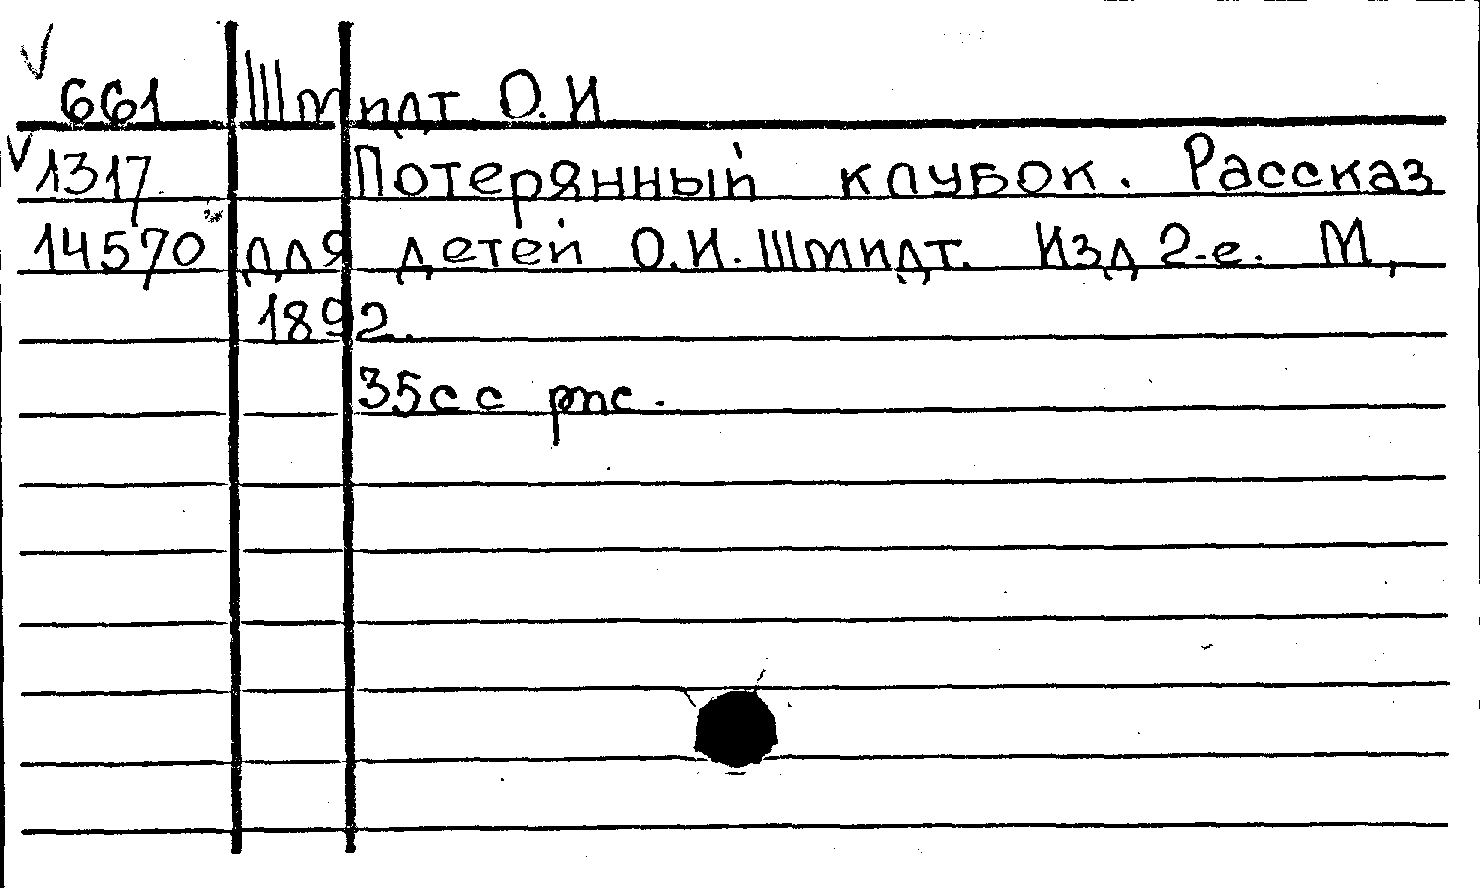 661 Шмидт О. И
1317 Потерянный клубок. Рассказ
14570 для детей О.И. Шмидт. Изд 2-е. М,
1892.
35с с рис.